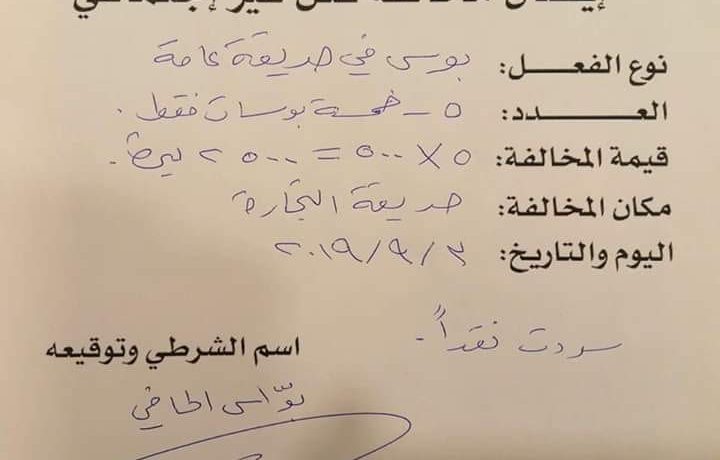 إيصال مخالفة فعل غير إجتماعي
نوع الفعـــل: بوس في حديقة عامة
العـــــدد: ٥ - خمسة بوسات فقط.
قيمة المخالفة: ٥ × ٥٠٠ = ٢٥٠٠ ليرة.
مكان المخالفة: حديقة التجارة
اليوم والتاريخ: ٣/٩/٢٠١٩
سددت نقداً -
اسم الشرطي وتوقيعه
بوّاس الحافي